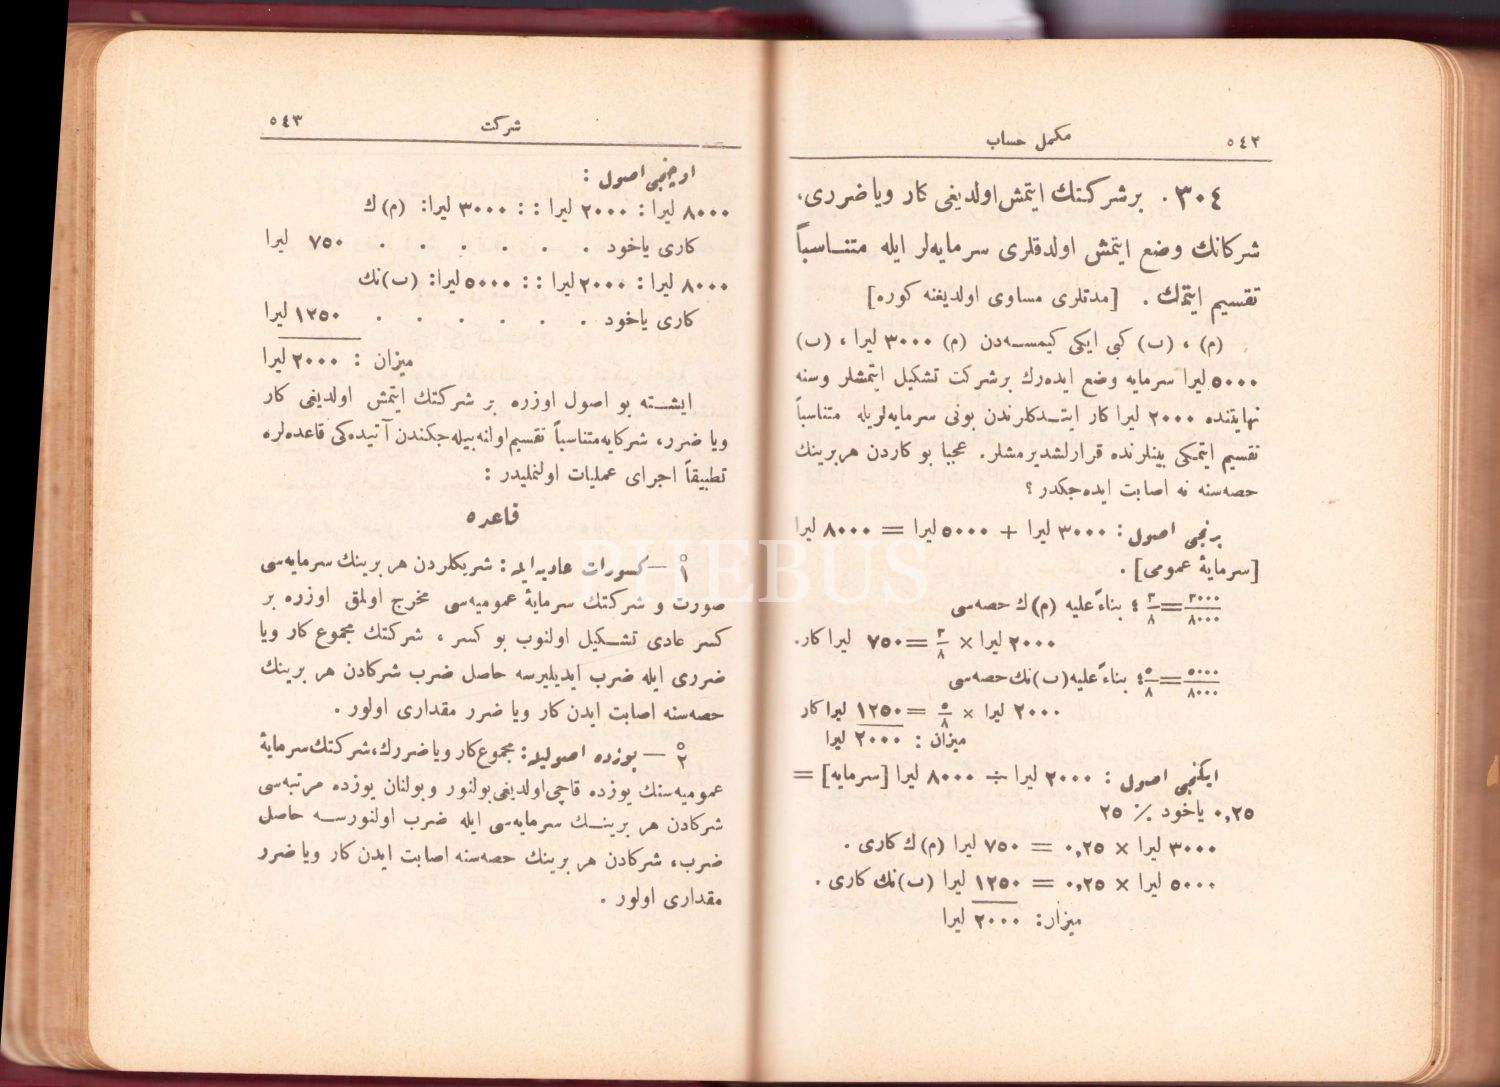 ٥٤٢ مكمل حساب
٣٠٤. برشركتك ايتمش اولديغى كار وياضررى،
شركانك وضع ايتمش اولدقلرى سرمايه‌لر ايله متناسباً
تقسيم ايتمك. [مدتلرى مساوى اولديغنه كوره]
(م) ، (ب) كبى ايكى كيمسه‌دن (م) ٣٠٠٠ ليرا ، (ب)
٥٠٠٠ ليرا سرمايه وضع ايده‌رك برشركت تشكيل ايتمشلر وسنه
نهايتنده ٢٠٠٠ ليرا كار ايتدكلرندن بونى سرمايه‌لريله متناسباً
تقسيم ايتمكى بينلرنده قرارلشديرمشلر. عجبا بو كاردن هربرينك
حصه‌سنه نه اصابت ايده‌جكدر؟
برنجى اصول : ٣٠٠٠ ليرا + ٥٠٠٠ ليرا = ٨٠٠٠ ليرا
[سرمايۀ عمومى].
٣٠٠٠/٨٠٠٠ = ٣/٨ ٤ بناءً عليه (م)ك حصه‌سى
٢٠٠٠ ليرا × ٣/٨ = ٧٥٠ ليرا كار.
٥٠٠٠/٨٠٠٠ = ٥/٨ ٤ بناءً عليه (ب)نك حصه‌سى
٢٠٠٠ ليرا × ٥/٨ = ١٢٥٠ ليرا كار
ميزان : ٢٠٠٠ ليرا
ايكنجى اصول : ٢٠٠٠ ليرا ÷ ٨٠٠٠ ليرا [سرمايه] =
٠,٢٥ ياخود ٪ ٢٥
٣٠٠٠ ليرا × ٠,٢٥ = ٧٥٠ ليرا (م)ك كارى .
٥٠٠٠ ليرا × ٠,٢٥ = ١٢٥٠ ليرا (ب)نك كارى .
ميزان: ٢٠٠٠ ليرا
شركت ٥٤٣
اوچنجى اصول :
٨٠٠٠ ليرا : ٢٠٠٠ ليرا : : ٣٠٠٠ ليرا: (م)ك
كارى ياخود . . . . . . ٧٥٠ ليرا
٨٠٠٠ ليرا : ٢٠٠٠ ليرا : : ٥٠٠٠ ليرا: (ب)نك
كارى ياخود . . . . . . ١٢٥٠ ليرا
ميزان : ٢٠٠٠ ليرا
ايشته بو اصول اوزره بر شركتك ايتمش اولديغى كار
ويا ضرر، شركايه متناسباً تقسيم اولنه‌بيله‌جكندن آتيده‌كى قاعده‌لره
تطبيقاً اجراى عمليات اولنمليدر :
قاعده
١ْ — كسورات عاديه ايله : شريكلردن هر برينك سرمايه‌سى
صورت و شركتك سرمايۀ عموميه‌سى مخرج اولمق اوزره بر
كسر عادى تشكيل اولنوب بو كسر ، شركتك مجموع كار ويا
ضررى ايله ضرب ايديليرسه حاصل ضرب شركادن هر برينك
حصه‌سنه اصابت ايدن كار ويا ضرر مقدارى اولور .
٢ْ — يوزده اصوليله : مجموع كار وياضررك، شركتك سرمايۀ
عموميه‌سنك يوزده قاچى اولديغى بولنور وبولنان يوزده مرتبه‌سى
شركادن هر برينك سرمايه‌سى ايله ضرب اولنورسه حاصل
ضرب، شركادن هر برينك حصه‌سنه اصابت ايدن كار ويا ضرر
مقدارى اولور .
PHEBUS